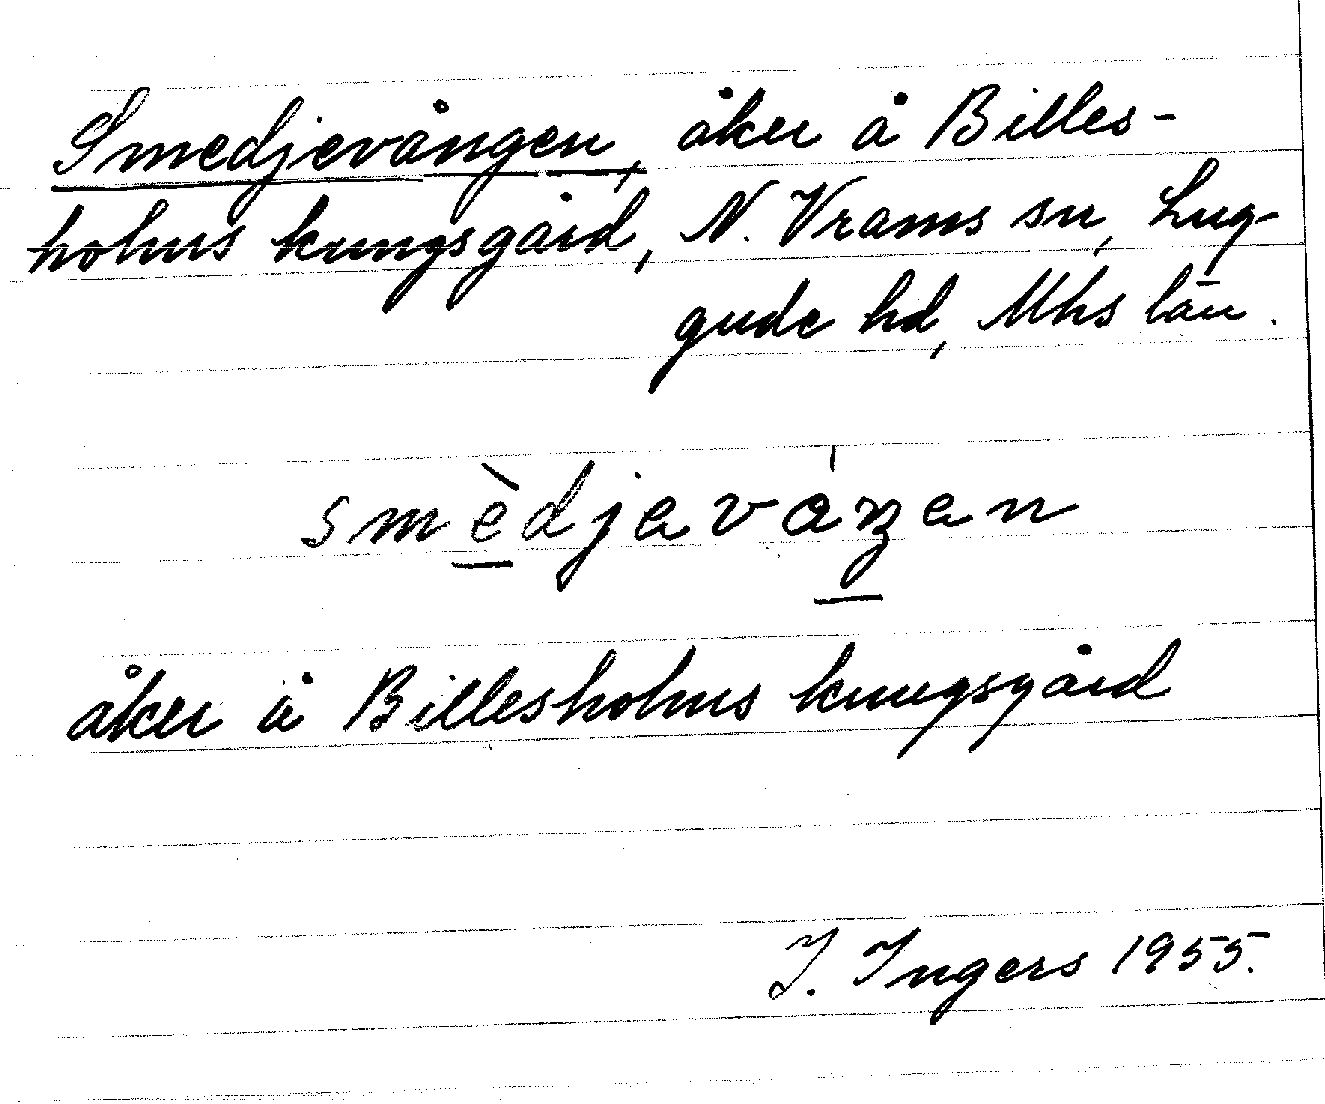 Smedjevången, åker å Billes-
holms kungsgård, N. Vrams sn, Lug-
gude hd, Mhs län.
smèdjavåŋan
åker å Billesholms kungsgård
I. Ingers 1955.